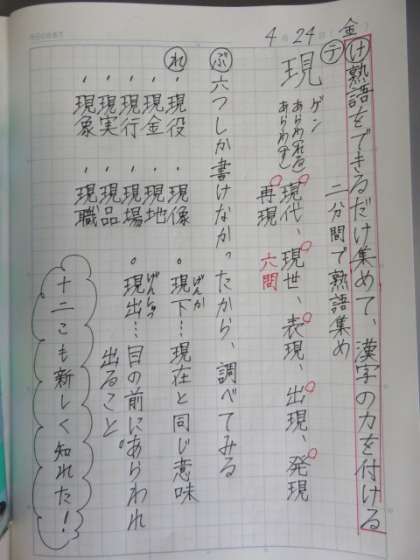 4月24日(金)
け 熟語をできるだけ集めて、漢字の力を付ける
テ 二分間で熟語集め
現 ゲン
あらわ(れる)
あらわ(す)
現代、現世、表現、出現、発現
再現 六問
ぶ 六つしか書けなかったから、調べてみる
れ ・現役 ・現像 ・現下…現在と同じ意味
げんか
・現金 ・現地 ・現出…目の前にあらわれ
げんしゅつ
・現行 ・現場 出ること。
・現実 ・現品
・現象 ・現職
十二こも新しく知れた!